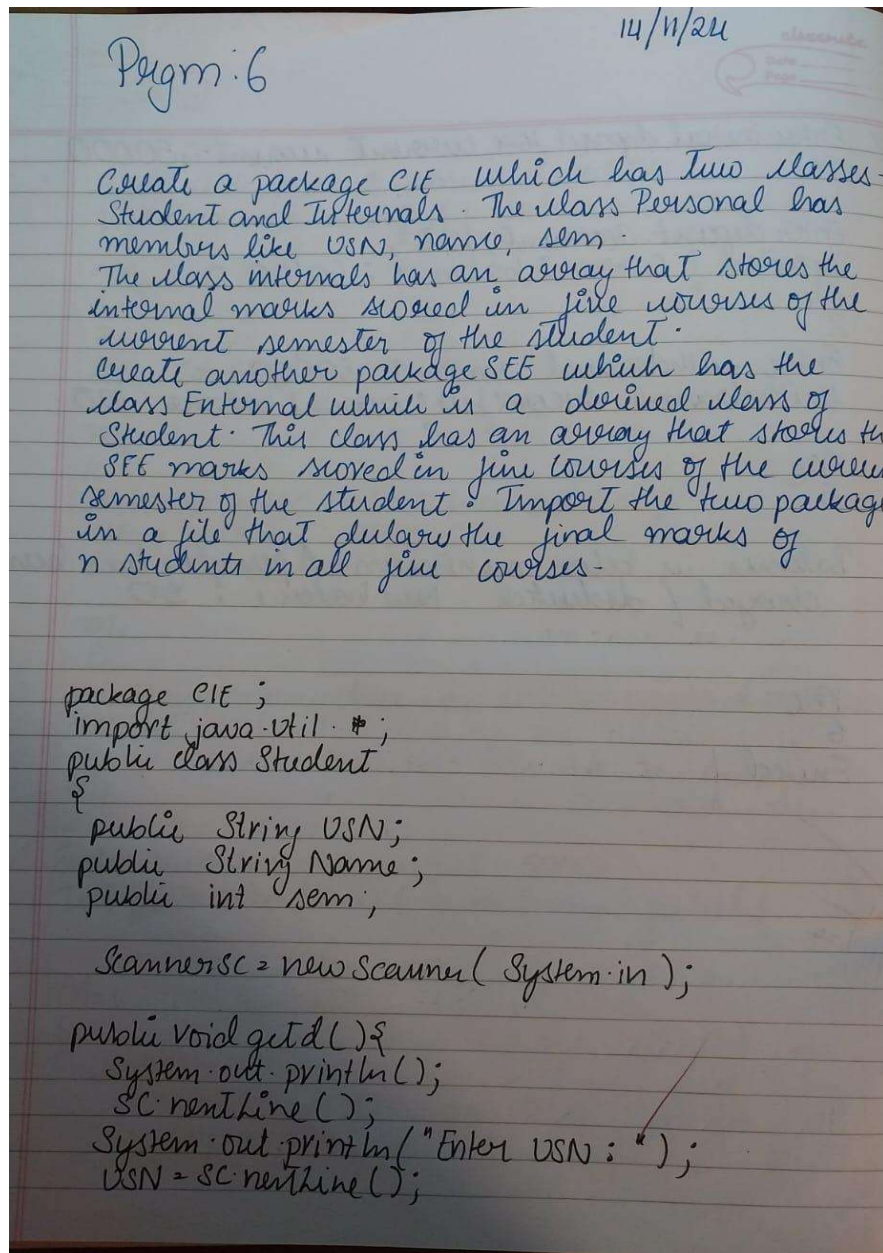 14/11/24
classmate
Date
Page
Prgm:6
Create a package CIE which has two classes-
Student and Internals. The class Personal has
members like USN, name, sem.
The class internals has an array that stores the
internal marks scored in five courses of the
current semester of the student.
Create another package SEE which has the
class External which is a derived class of
Student. This class has an array that stores th
SEE marks scored in five courses of the curren
semester of the student. Import the two package
in a file that declares the final marks of
n students in all five courses-
package CIE ;
import java.util.*;
public class Student
{
public String USN;
public String Name;
public int sem;
Scanner SC = new Scanner( System.in );
public void getd(){
System.out.println();
SC.nextLine();
System.out.println("Enter USN : ");
USN = SC.nextLine();